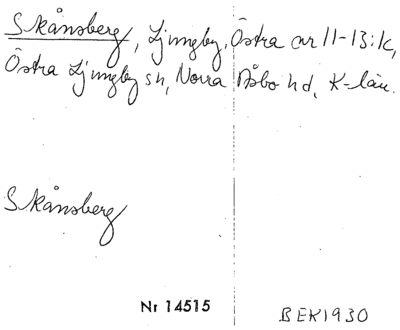 Skånsberg, Ljungby, Östra av 11-13:k,
Östra Ljungby sn, Norra Åsbo hd, K-län.
Skånsberg
Nr 14515
BEK 1930